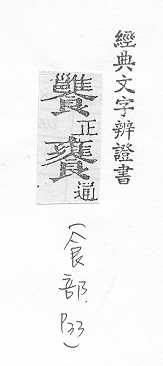 經典文字辨證書
正饔通
(食部 P33)